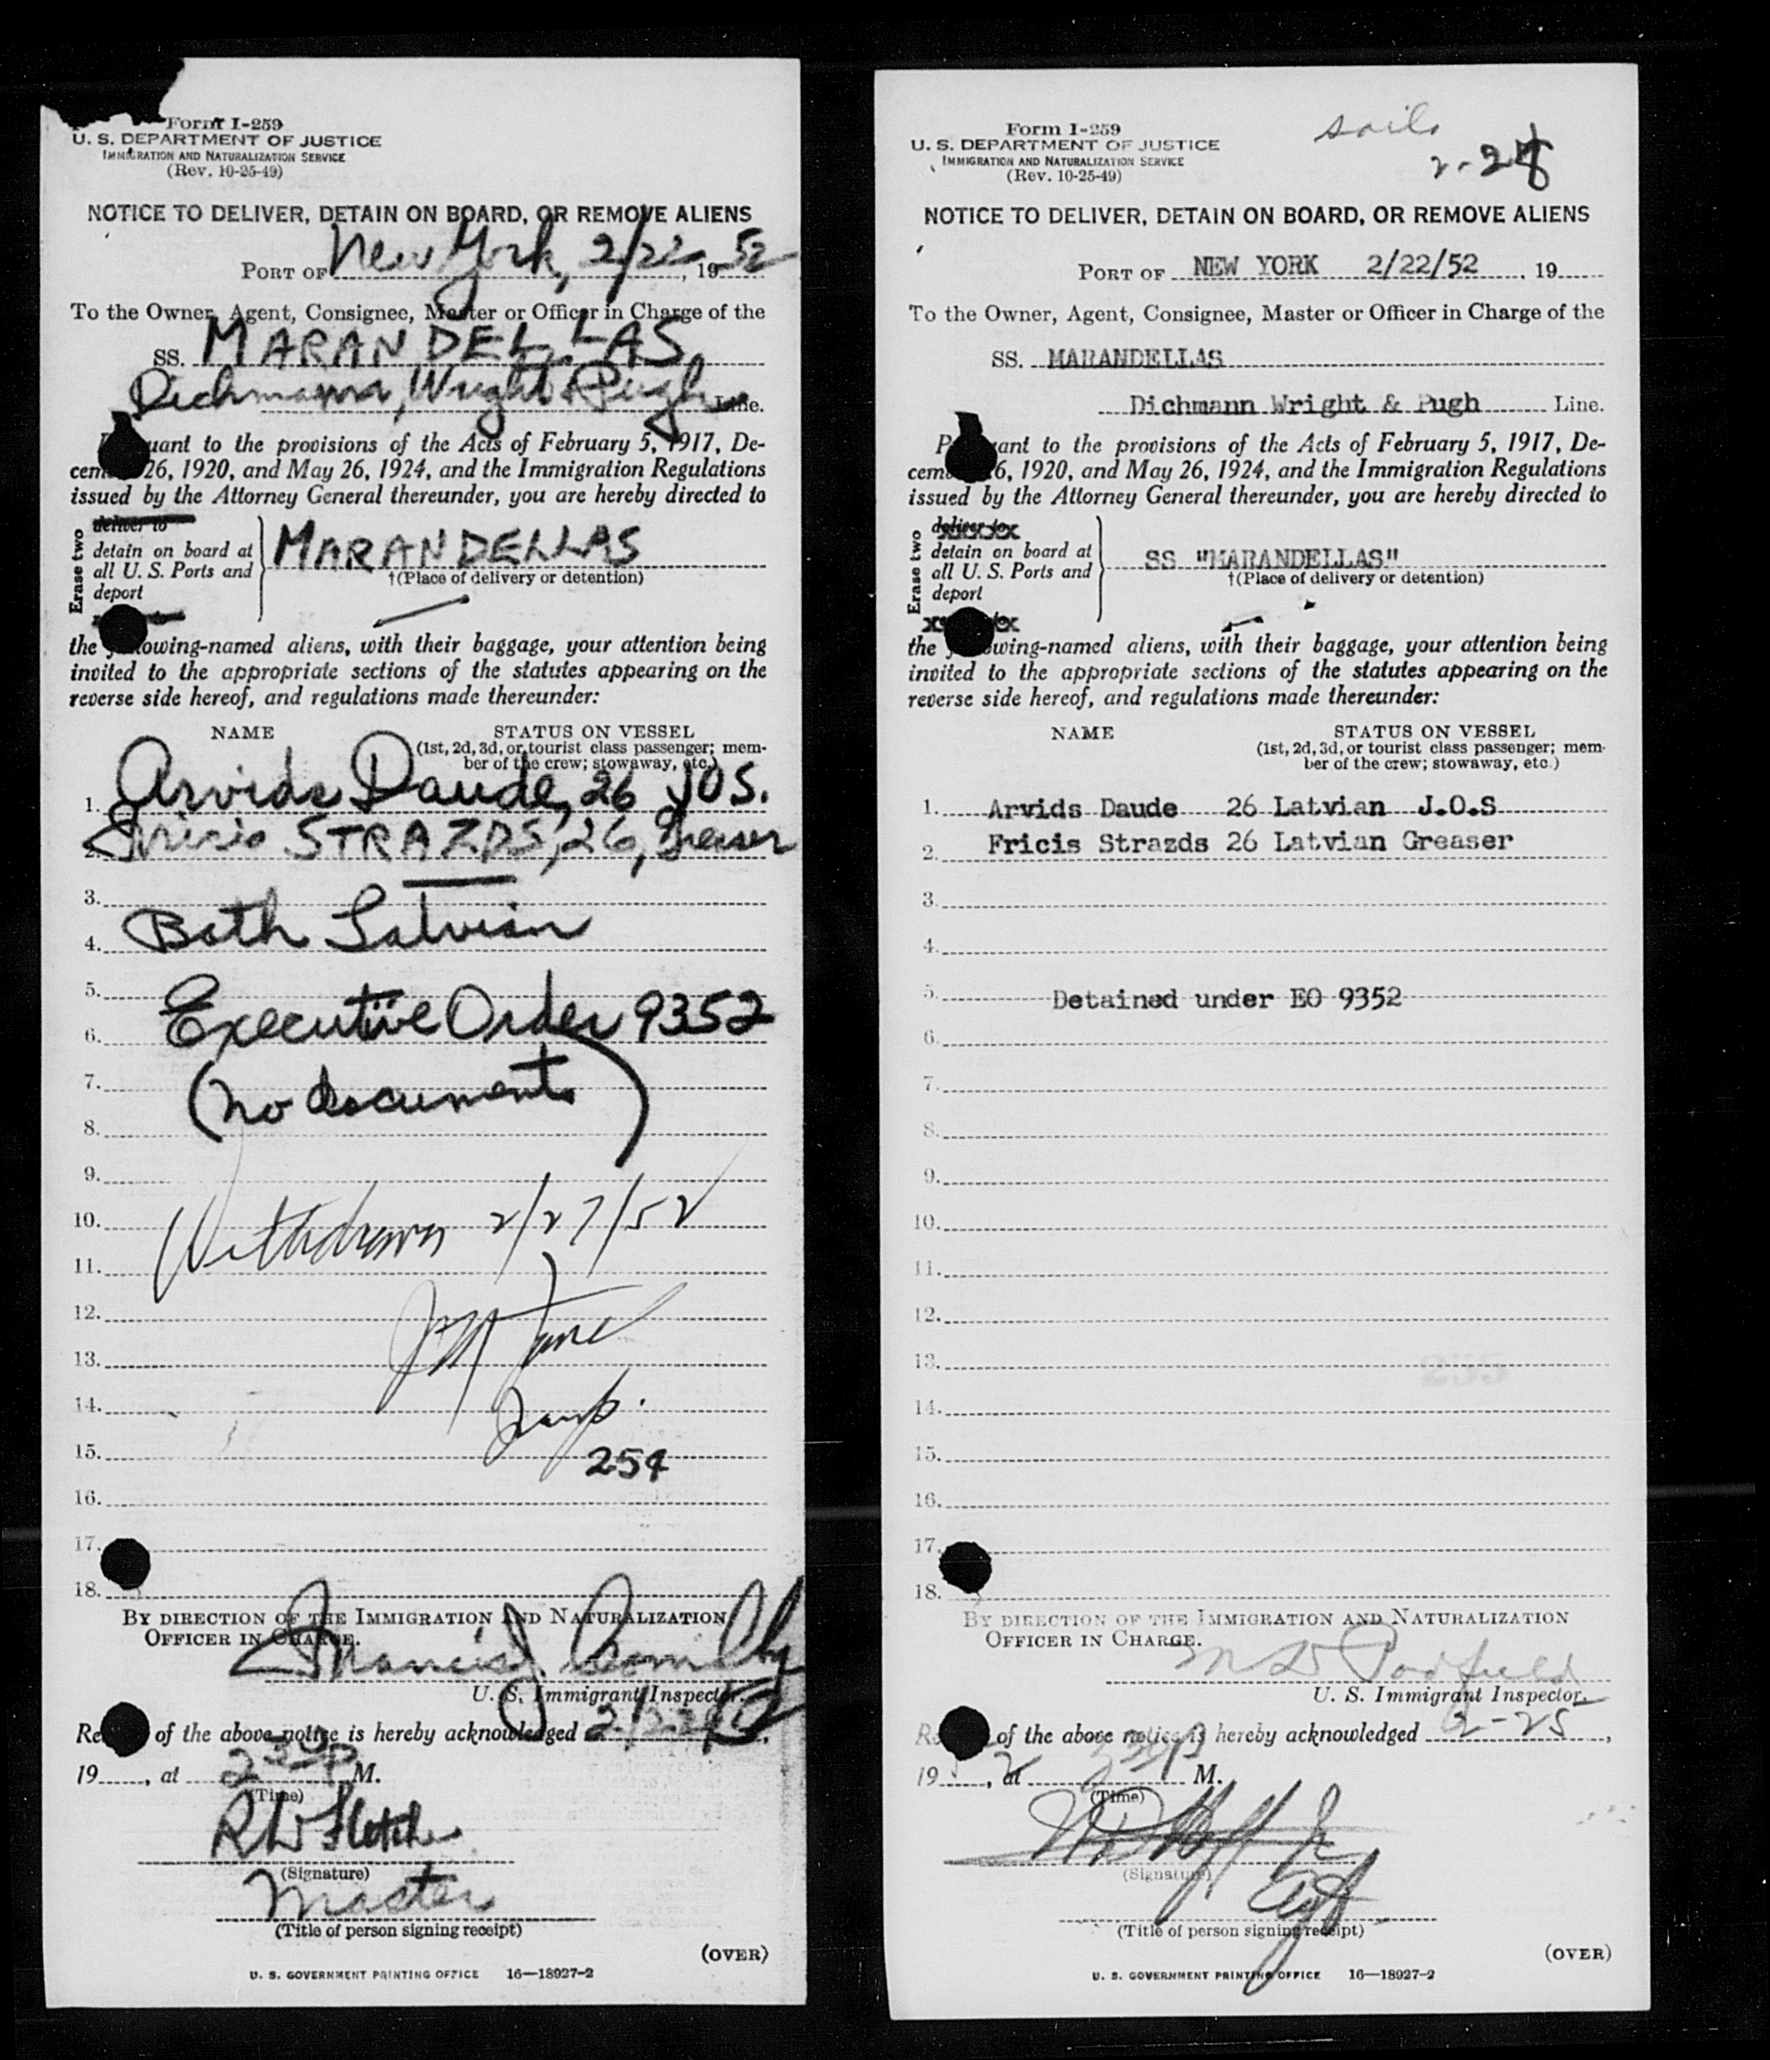 Form I-259
U. S. DEPARTMENT OF JUSTICE
IMMIGRATION AND NATURALIZATION SERVICE
(Rev. 10-25-49)
NOTICE TO DELIVER, DETAIN ON BOARD, OR REMOVE ALIENS
PORT OF New York, 2/22, 19 52
To the Owner, Agent, Consignee, Master or Officer in Charge of the
SS. MARANDELLAS
Dichmann, Wright & Pugh Line.
uant to the provisions of the Acts of February 5, 1917, De-
cem 26, 1920, and May 26, 1924, and the Immigration Regulations
issued by the Attorney General thereunder, you are hereby directed to
Erase two
deliver to
detain on board at
all U. S. Ports and
deport
MARANDELLAS
†(Place of delivery or detention)
the owing-named aliens, with their baggage, your attention being
invited to the appropriate sections of the statutes appearing on the
reverse side hereof, and regulations made thereunder:
NAME STATUS ON VESSEL
(1st, 2d, 3d, or tourist class passenger; mem-
ber of the crew; stowaway, etc.)
1. Arvids Daude, 26 JOS.
2. Fricis STRAZDS, 26, Greaser
3.
4. Both Latvian
5.
6. Executive Order 9352
7.
8. (no documents)
9.
10. Withdrawn 2/27/52
11.
12.
13.
14. Insp.
15. 254
16.
17.
18.
BY DIRECTION OF THE IMMIGRATION AND NATURALIZATION
OFFICER IN CHARGE.
Francis J.
U. S. Immigrant Inspector.
Re of the above notice is hereby acknowledged 2/22/52,
19, at M.
(Time)
R W Fletcher
(Signature)
Master
(Title of person signing receipt)
(OVER)
U. S. GOVERNMENT PRINTING OFFICE 16—18927-2
sails
Form I-259
U. S. DEPARTMENT OF JUSTICE
IMMIGRATION AND NATURALIZATION SERVICE
(Rev. 10-25-49)
NOTICE TO DELIVER, DETAIN ON BOARD, OR REMOVE ALIENS
PORT OF NEW YORK 2/22/52, 19
To the Owner, Agent, Consignee, Master or Officer in Charge of the
SS. MARANDELLAS
Dichmann Wright & Pugh Line.
P uant to the provisions of the Acts of February 5, 1917, De-
cem 6, 1920, and May 26, 1924, and the Immigration Regulations
issued by the Attorney General thereunder, you are hereby directed to
Erase two
deliver to
detain on board at
all U. S. Ports and
deport
SS "MARANDELLAS"
†(Place of delivery or detention)
the owing-named aliens, with their baggage, your attention being
invited to the appropriate sections of the statutes appearing on the
reverse side hereof, and regulations made thereunder:
NAME STATUS ON VESSEL
(1st, 2d, 3d, or tourist class passenger; mem-
ber of the crew; stowaway, etc.)
1. Arvids Daude 26 Latvian J.O.S
2. Fricis Strazds 26 Latvian Greaser
3.
4.
5. Detained under EO 9352
6.
7.
8.
9.
10.
11.
12.
13. 255
14.
15.
16.
17.
18.
BY DIRECTION OF THE IMMIGRATION AND NATURALIZATION
OFFICER IN CHARGE.
Padfield
U. S. Immigrant Inspector.
Re of the above notice is hereby acknowledged 2-25,
19, at M.
(Time)
(Signature)
Agt
(Title of person signing receipt)
(OVER)
U. S. GOVERNMENT PRINTING OFFICE 16—18927-2